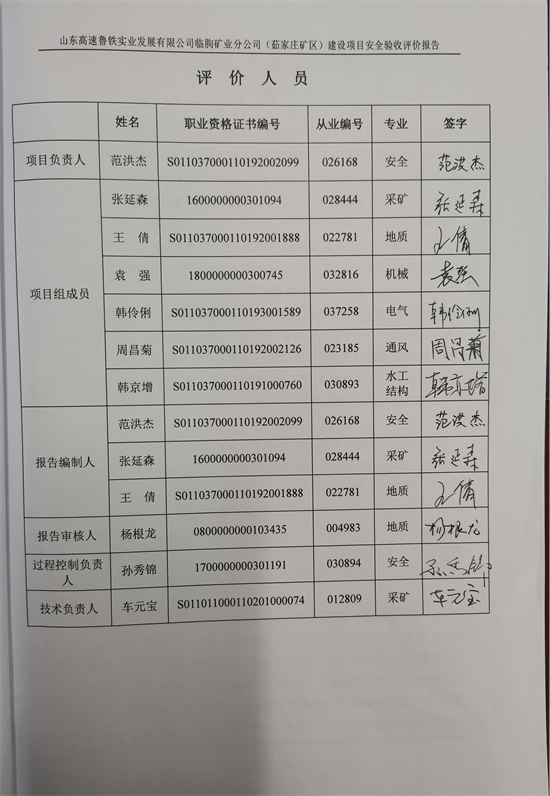 山东高速鲁铁实业发展有限公司临朐矿业分公司（茹家庄矿区）建设项目安全验收评价报告
评价人员
姓名 职业资格证书编号 从业编号 专业 签字
项目负责人 范洪杰 S011037000110192002099 026168 安全 范洪杰
项目组成员
张延森 1600000000301094 028444 采矿 张延森
王 倩 S011037000110192001888 022781 地质 王倩
袁 强 1800000000300745 032816 机械 袁强
韩伶俐 S011037000110193001589 037258 电气 韩伶俐
周昌菊 S011037000110192002126 023185 通风 周昌菊
韩京增 S011037000110191000760 030893 水工结构 韩京增
报告编制人
范洪杰 S011037000110192002099 026168 安全 范洪杰
张延森 1600000000301094 028444 采矿 张延森
王 倩 S011037000110192001888 022781 地质 王倩
报告审核人 杨根龙 0800000000103435 004983 地质 杨根龙
过程控制负责人 孙秀锦 1700000000301191 030894 安全 孙秀锦
技术负责人 车元宝 S011011000110201000074 012809 采矿 车元宝